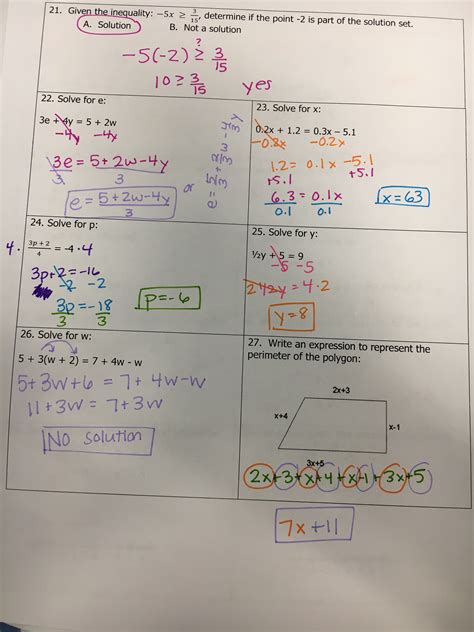 21. Given the inequality: −5x ≥ 3/15, determine if the point -2 is part of the solution set.
A. Solution B. Not a solution
?
-5(-2) ≥ 3/15
10 ≥ 3/15 yes
22. Solve for e:
3e + 4y = 5 + 2w
-4y -4y
3e = 5 + 2w - 4y
3 3
e = 5 + 2w - 4y
3
or
e = 5/3 + 2/3 w - 4/3 y
23. Solve for x:
0.2x + 1.2 = 0.3x – 5.1
-0.2x -0.2x
1.2 = 0.1x - 5.1
+5.1 +5.1
6.3 = 0.1x
0.1 0.1
x = 63
24. Solve for p:
4 · 3p + 2 = -4 · 4
4
3p + 2 = -16
-2 -2
3p = -18
3 3
p = -6
25. Solve for y:
½y + 5 = 9
-5 -5
2 · ½y = 4 · 2
y = 8
26. Solve for w:
5 + 3(w + 2) = 7 + 4w - w
5 + 3w + 6 = 7 + 4w - w
11 + 3w = 7 + 3w
No solution
27. Write an expression to represent the
perimeter of the polygon:
2x+3
x+4
x-1
3x+5
2x+3+x+4+x-1+3x+5
7x + 11